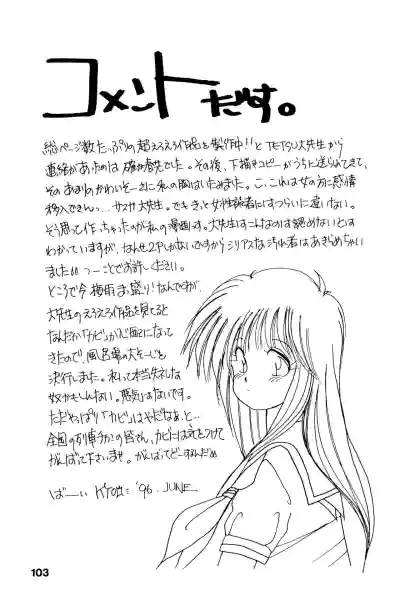 コメントだす。
総ページ数たっぷりの超えろえろ作品を製作中!!とTETSU大先生から
連絡があったのは確か春先でした。その後、下描やコピーがうちに送られてきて、
そのあまりのかわいそーさに私の胸はいたみました。こ、これは女の方に感情
移入できんっ…サスガ大先生。でもきっと女性読者にはつらいに違いない。
そう思って作っちゃったのが私の漫画です。大先生はこんなのは認めないとは
わかっていますが、なんせ2Pしかないですからシリアスな汚れ者はあきらめちゃい
ました つーことでお許しください。
ところで今梅雨まっ盛り!なんですが、
大先生のえろえろ作品を見てると
なんだか「カビ」が心配になって
きたので、風呂場の大そーじを
決行しました。私って本当失礼な
奴かもしんない。悪気はないです。
ただやっぱり「カビ」はやだなぁと…
全国の列車の皆さん、カビには気をつけて
がんばって下さいませ。がんばってどーすんだめ
ばーい '96. JUNE
103